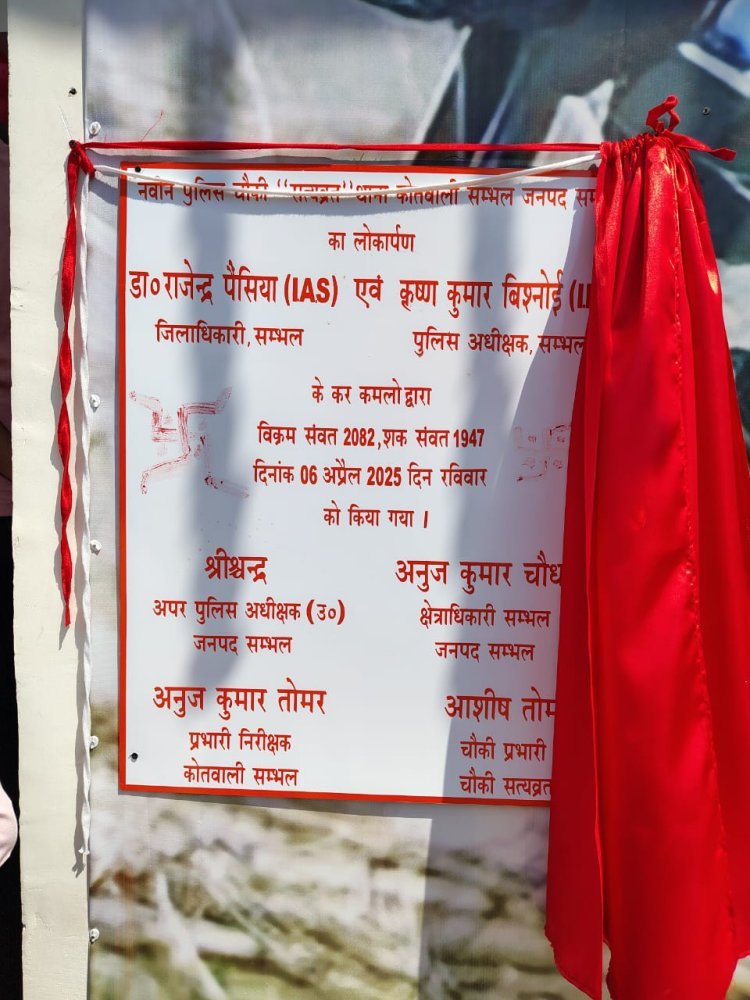 नवीन पुलिस चौकी "सत्यव्रत" थाना कोतवाली सम्भल जनपद सम
का लोकार्पण
डा० राजेन्द्र पैंसिया (IAS) एवं कृष्ण कुमार बिश्नोई (I
जिलाधिकारी, सम्भल पुलिस अधीक्षक, सम्भल
के कर कमलो द्वारा
विक्रम संवत 2082, शक संवत 1947
दिनांक 06 अप्रैल 2025 दिन रविवार
को किया गया ।
श्रीश्चन्द्र अनुज कुमार चौध
अपर पुलिस अधीक्षक (उ०) क्षेत्राधिकारी सम्भल
जनपद सम्भल जनपद सम्भल
अनुज कुमार तोमर आशीष तोम
प्रभारी निरीक्षक चौकी प्रभारी
कोतवाली सम्भल चौकी सत्यव्रत